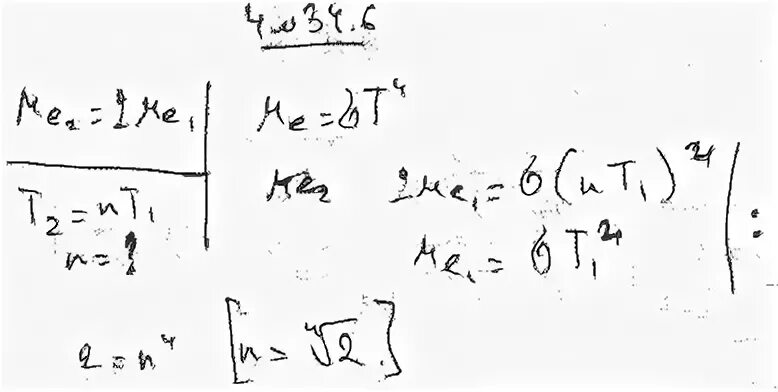 4.34.6
Me₂ = 2Me₁
T₂ = nT₁
n = ?
Me = σT⁴
Me₂ 2Me₁ = σ(nT₁)⁴
Me₁ = σT₁⁴ :
2 = n⁴ [n = ⁴√2.]